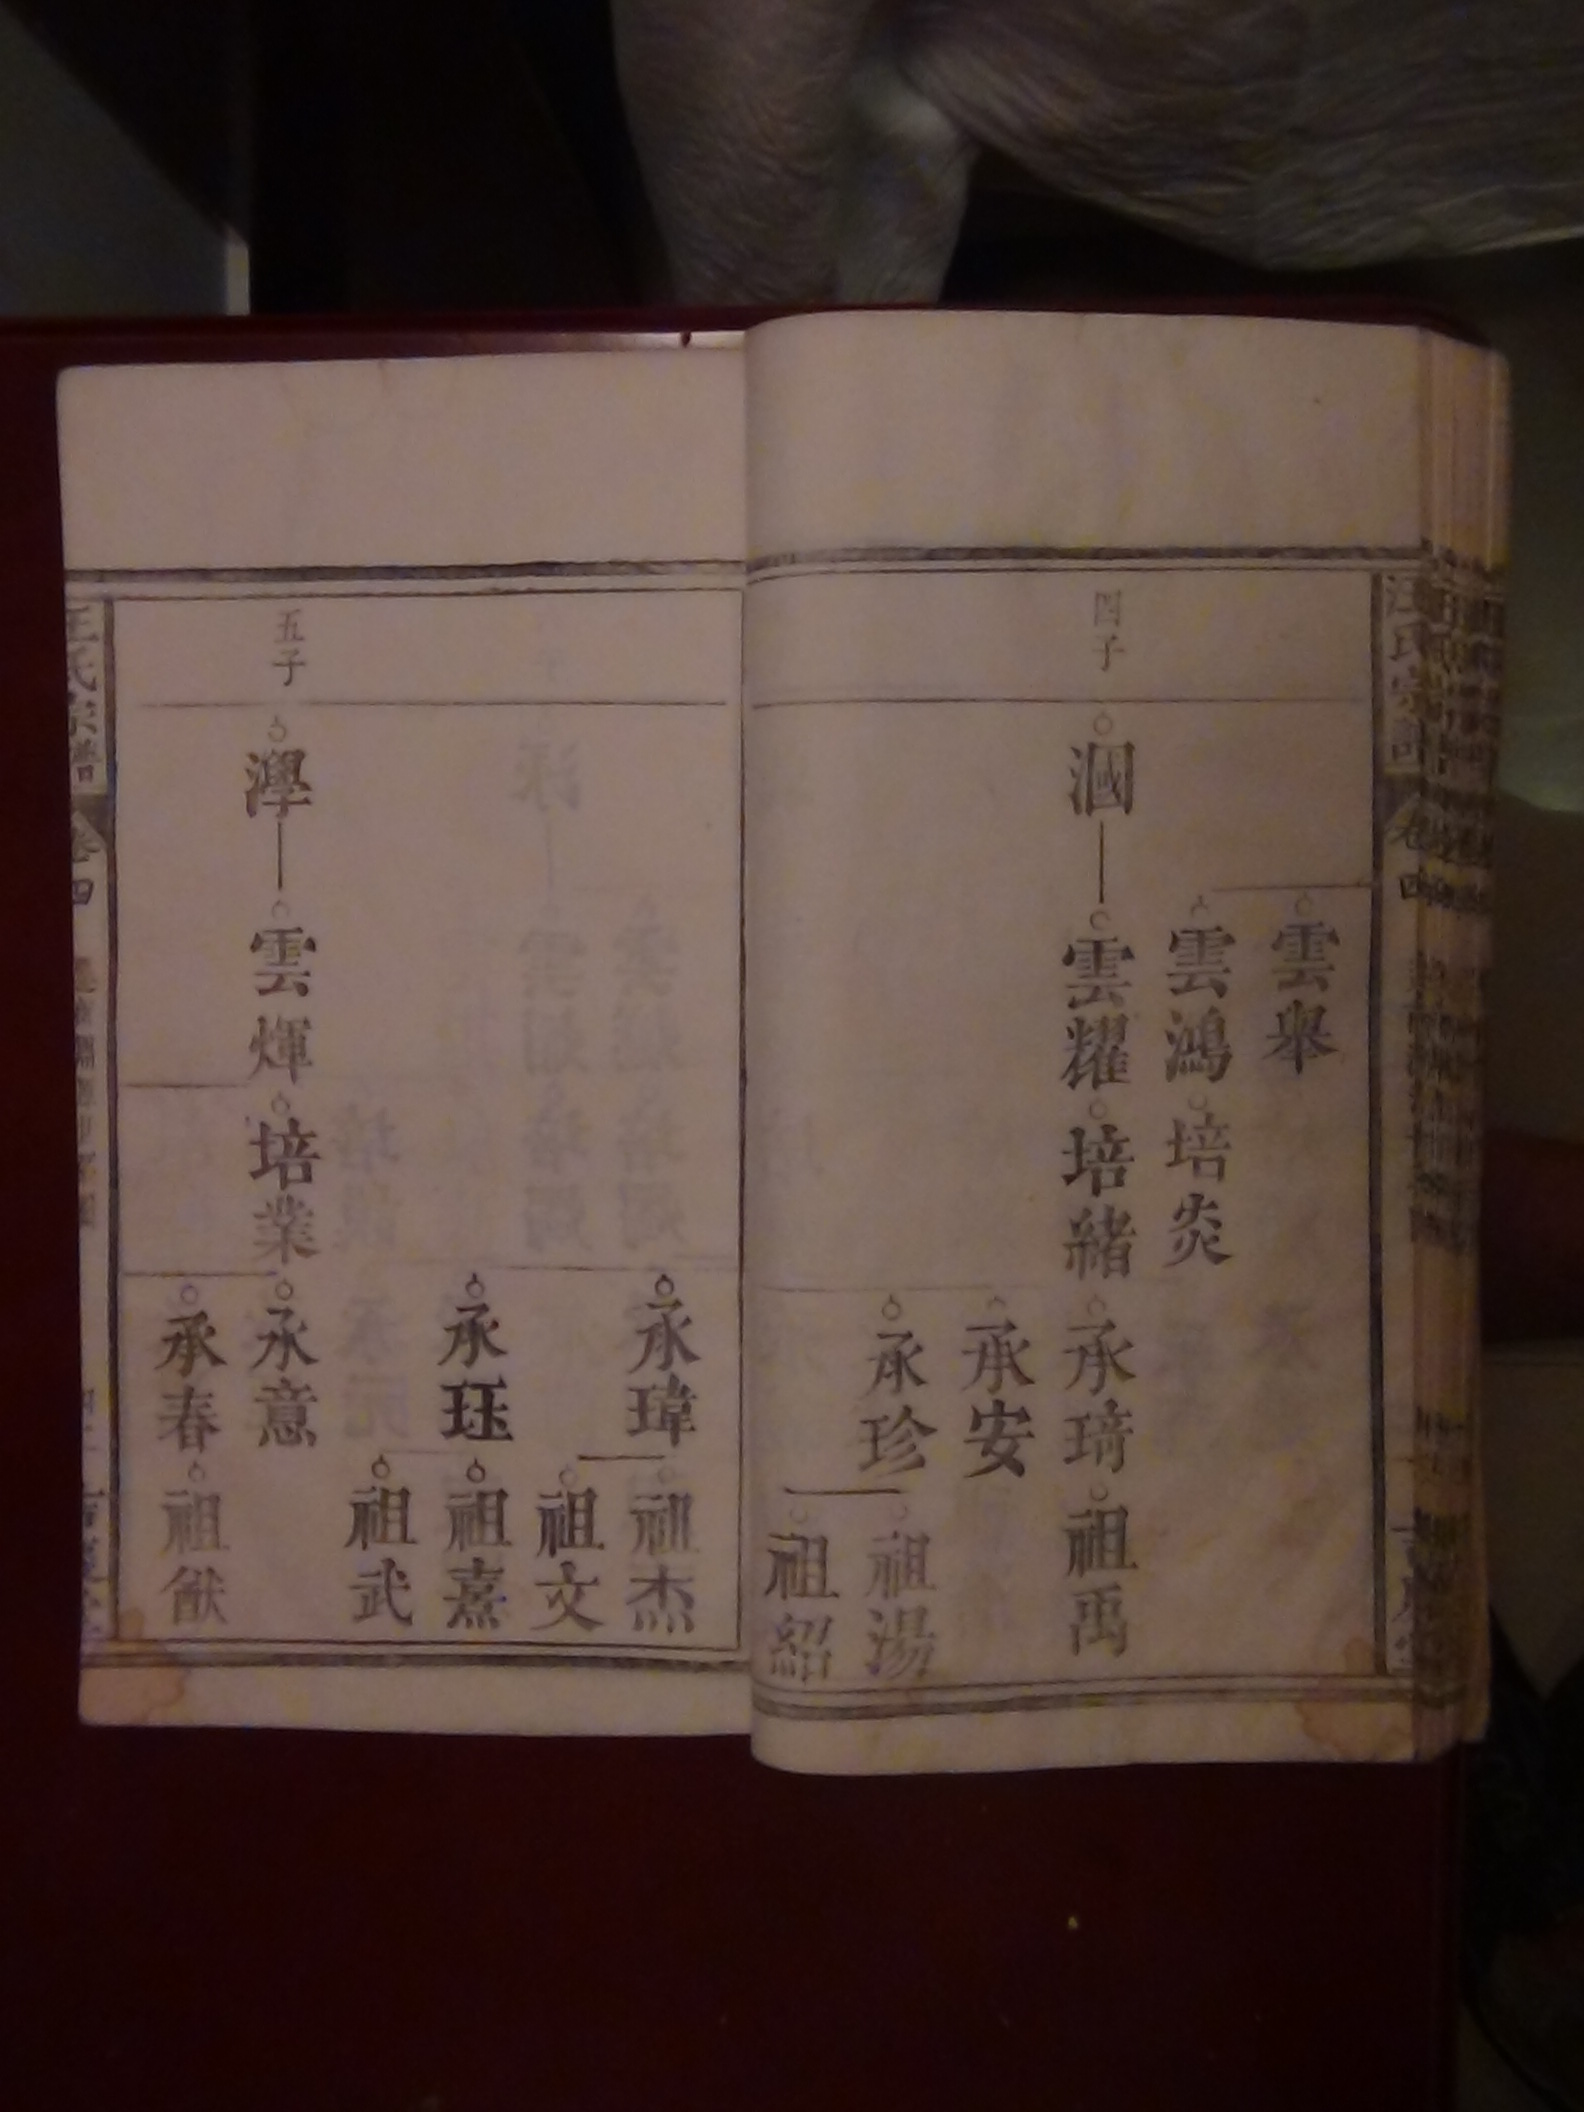 汪氏宗譜
卷四
雲舉
雲鴻
培炎
四子
漍
雲耀
培緒
承琦
祖禹
承安
承珍
祖湯
祖紹
承瑋
祖杰
祖文
承珏
祖熹
祖武
五子
澩
雲煇
培業
承意
承春
祖猷
汪氏宗譜
卷四